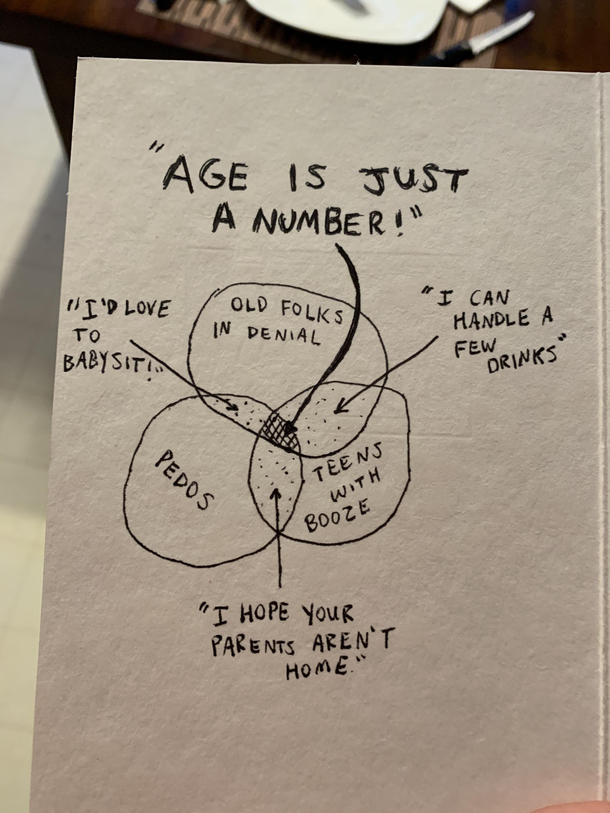 "AGE IS JUST
A NUMBER!"
"I'D LOVE
TO
BABYSIT!"
OLD FOLKS
IN DENIAL
"I CAN
HANDLE A
FEW
DRINKS"
PEDOS
TEENS
WITH
BOOZE
"I HOPE YOUR
PARENTS AREN'T
HOME."